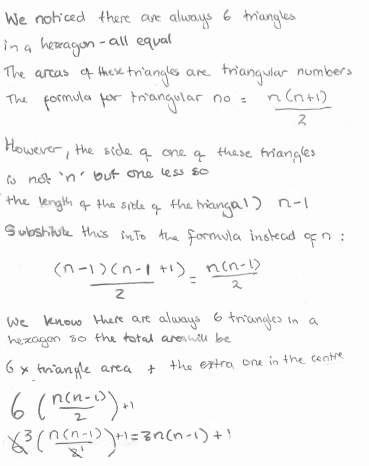 We noticed there are always 6 triangles
in a hexagon - all equal
The areas of these triangles are triangular numbers
The formula for triangular no = n(n+1)/2
However, the side of one of these triangles
is not 'n' but one less so
the length of the side of the triangal) n-1
Substitute this into the formula instead of n:
(n-1)(n-1+1)/2 = n(n-1)/2
We know there are always 6 triangles in a
hexagon so the total area will be
6 x triangle area + the extra one in the centre
6 (n(n-1)/2) +1
6 3 (n(n-1)/2 1) +1 = 3n(n-1)+1